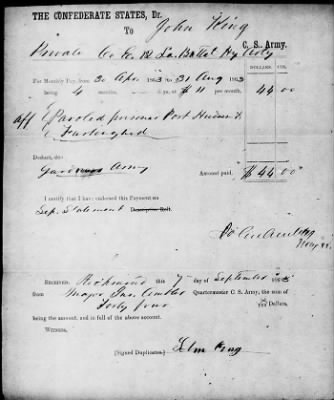 THE CONFEDERATE STATES, Dr.
To John King
Private Co 12 La. Battal Hy Arty C. S. Army.
DOLLARS. CTS.
For Monthly Pay from 30 Apr 1863 to 31 Aug 1863
being 4 months ds, at $11 per month, 44 00
Paroled prisoner Port Hudson &
Furloughed
Deduct, due
Amount paid, $44.00
I certify that I have endorsed this Payment on
Sep. Statement Descriptive Roll.
RECEIVED, Richmond this 7 day of September 1863
from Major Jno. Ambler Quartermaster C. S. Army, the sum of
Forty four Dollars,
being the amount, and in full of the above account.
WITNESS,
(Signed Duplicates.) John King